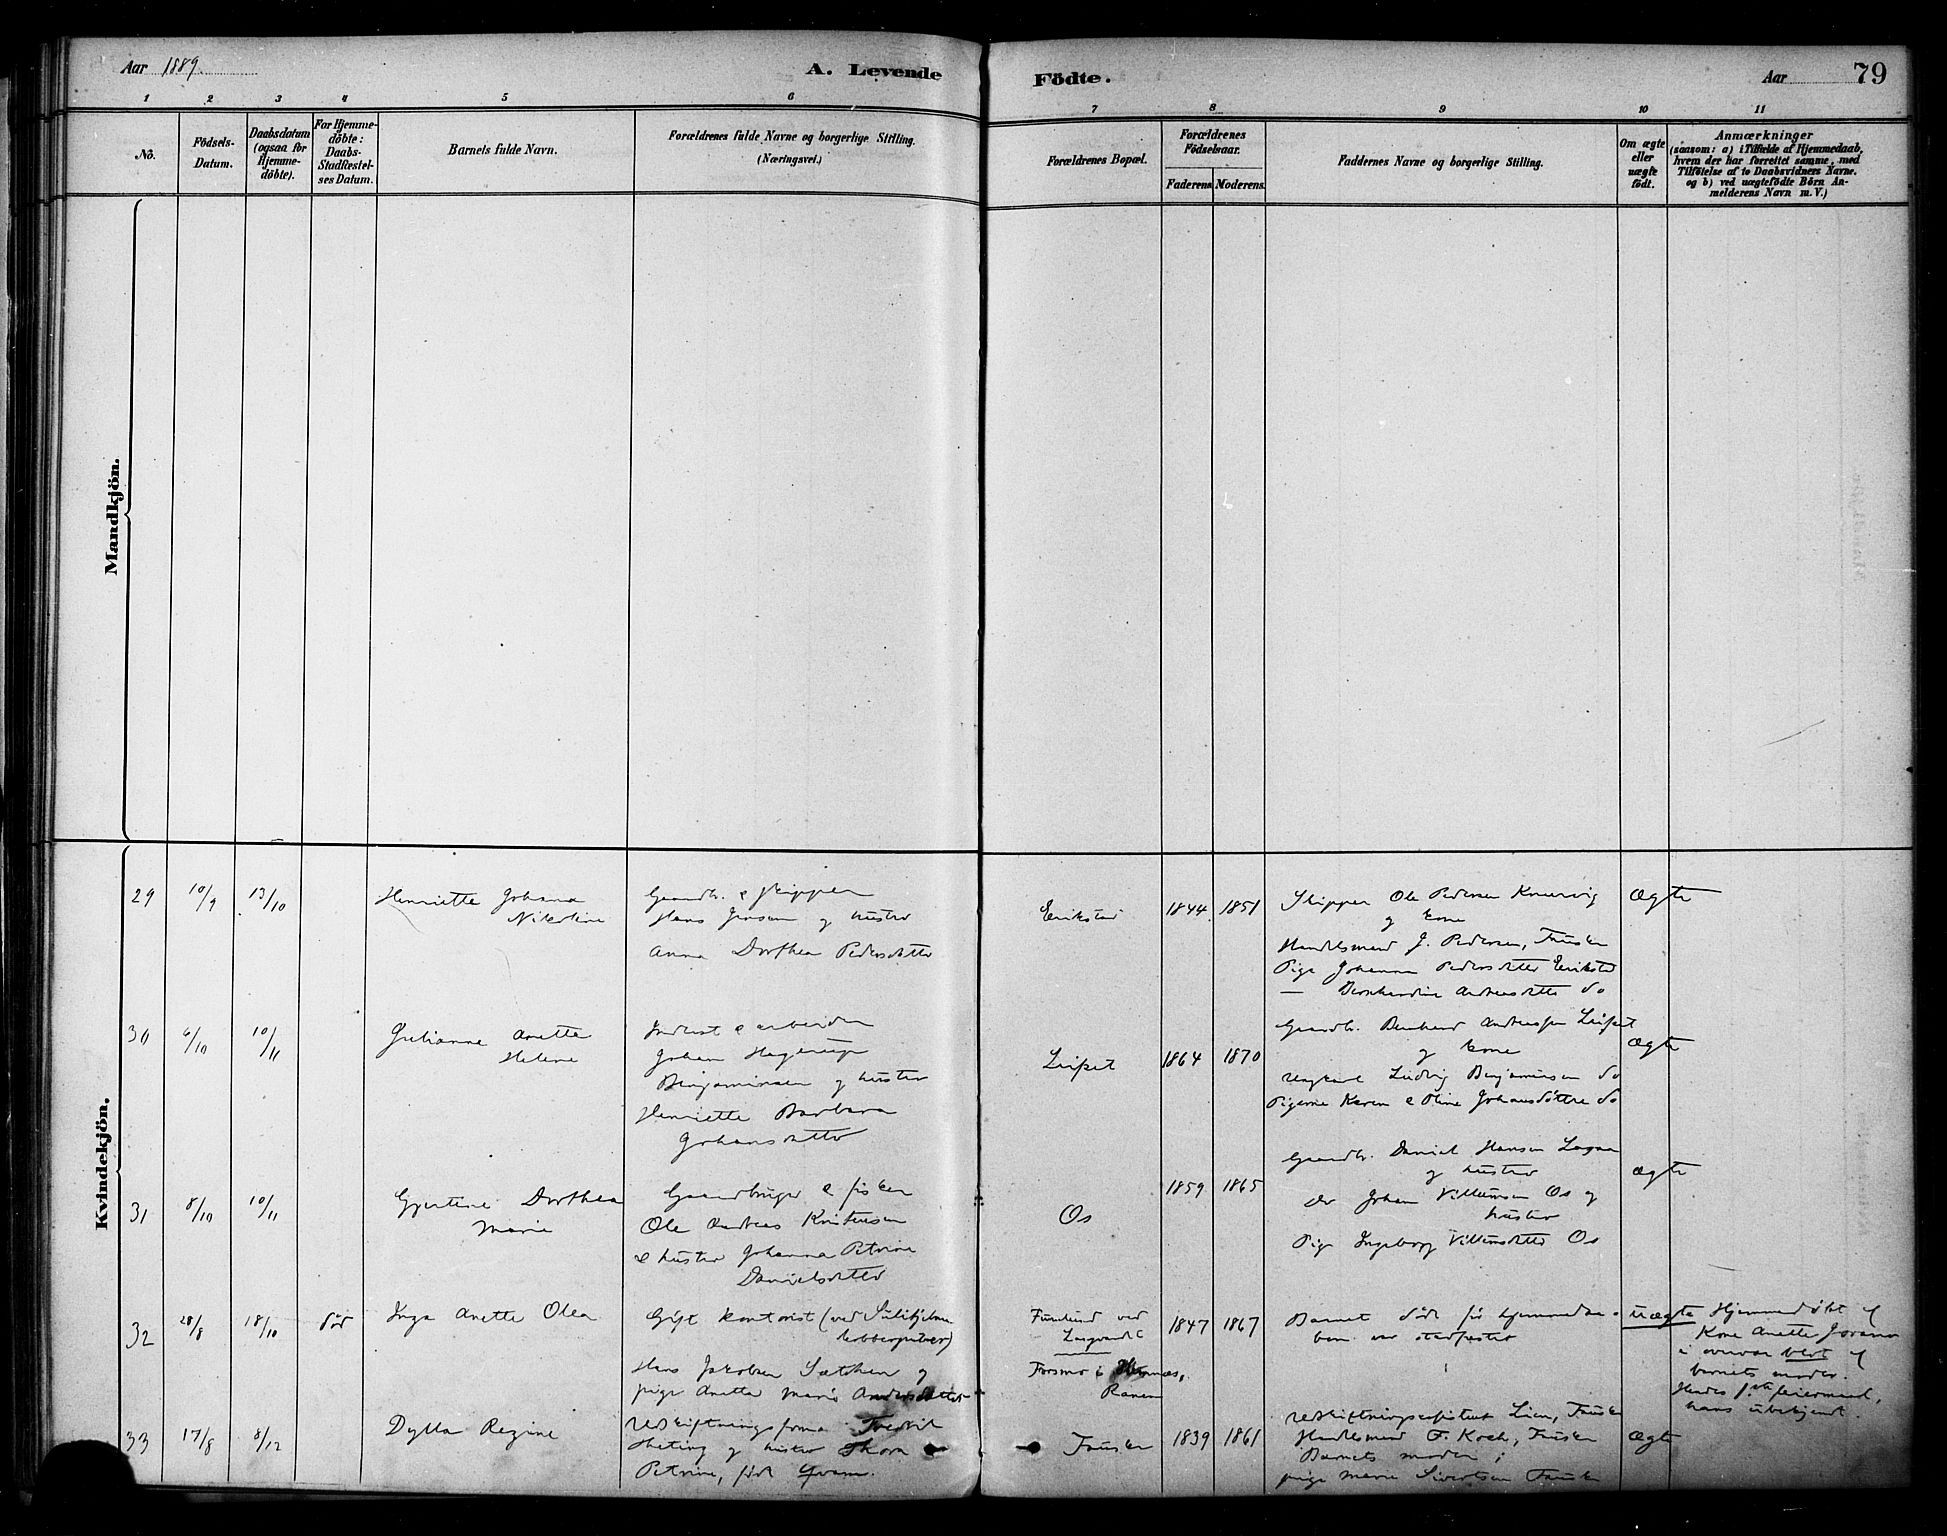 Aar 1889.
A. Levende
Födte.
Aar
79
1 2 3 4 5 6 7 8 9 10 11
No.
Födsels-
Datum.
Daabsdatum
(ogsaa for
Hjemme-
döbte).
For Hjemme-
döbte:
Daabs-
Stadfæstel-
ses Datum.
Barnets fulde Navn.
Forældrenes fulde Navne og borgerlige Stilling.
(Næringsvei.)
Forældrenes Bopæl.
Forældrenes
Födselsaar.
Faderens. Moderens.
Faddernes Navne og borgerlige Stilling.
Om ægte
eller
uægte
födt.
Anmærkninger
(saasom: a) i Tilfælde af Hjemmedaab,
hvem der har forrettet samme, med
Tilföielse af to Daabsvidners Navne.
og b) ved uægtefödte Börn An-
melderens Navn m. V.)
Mandkjön.
Kvindekjön.
29
10/9
13/10
Henriette Johana
Nikoline
Gaardb. & skipper
Hans Jensen og hustro
Anna Dorthea Pedersdatter
Erikstad
1844
1851
Skipper Ole Pedersen
og kone
Handelsmand J. Pedersen, Fauske
Pige Johanna Pedersdatter Erikstad
— Bernhardine Andreasdatter do
Ægte
30
6/10
10/11
Julianne Anette
Helene
Inderst & arbeider
Johan Hagerup
Benjaminsen og hustro
Henriette Barbara
Johansdatter
Leifset
1864
1870
Gaardb. Bernhard Andreassen Leifset
og kone
ungkarl Ludvig Benjaminsen do
Pigerne Karen & Oline Johansdöttre do
Ægte
31
8/10
10/11
Gjertine Dorthea
Marie
Gaardbruger & fisker
Ole Andreas Kristensen
& hustro Johanna Petrine
Danielsdatter
Os
1859
1865
Gaardb. Daniel Hansen
og hustro
do Johan Villumsen Os og
hustro
Pige Ingeborg Villumsdatter Os
Ægte
32
28/8
18/10
död
Inga Anette Olea
Gift kontorist (ved Sulitjelma
kobbergruber)
Hans Jakobsen og
pige Anette Marie Andersdatter
Furulund ved
Langvandet
Forsmo i
Ranen
1847
1867
Barnet döde för hjemmedaa-
ben var stadfæstet
uægte
Hjemmedöbt af
Kone Anette
i overvær blot af
barnets moder.
Hendes 1ste leiermaal,
hans ubekjendt.
33
17/8
8/12
Dylla Regine
udskiftningsforma
og hustro Thora
Petrine, födt
Fauske
1839
1861
udskiftningsassistent Lien, Fauske
Handelsmand F. Koch, Fauske
Barnets moder;
pige Marie Sivertsen Fauske
Ægte